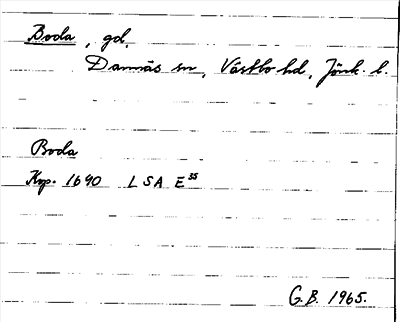 Boda, gd.
Dannäs sn, Västbo hd, Jönk. l.
Boda
Kop. 1690 LSA E³⁵
G.B. 1965.